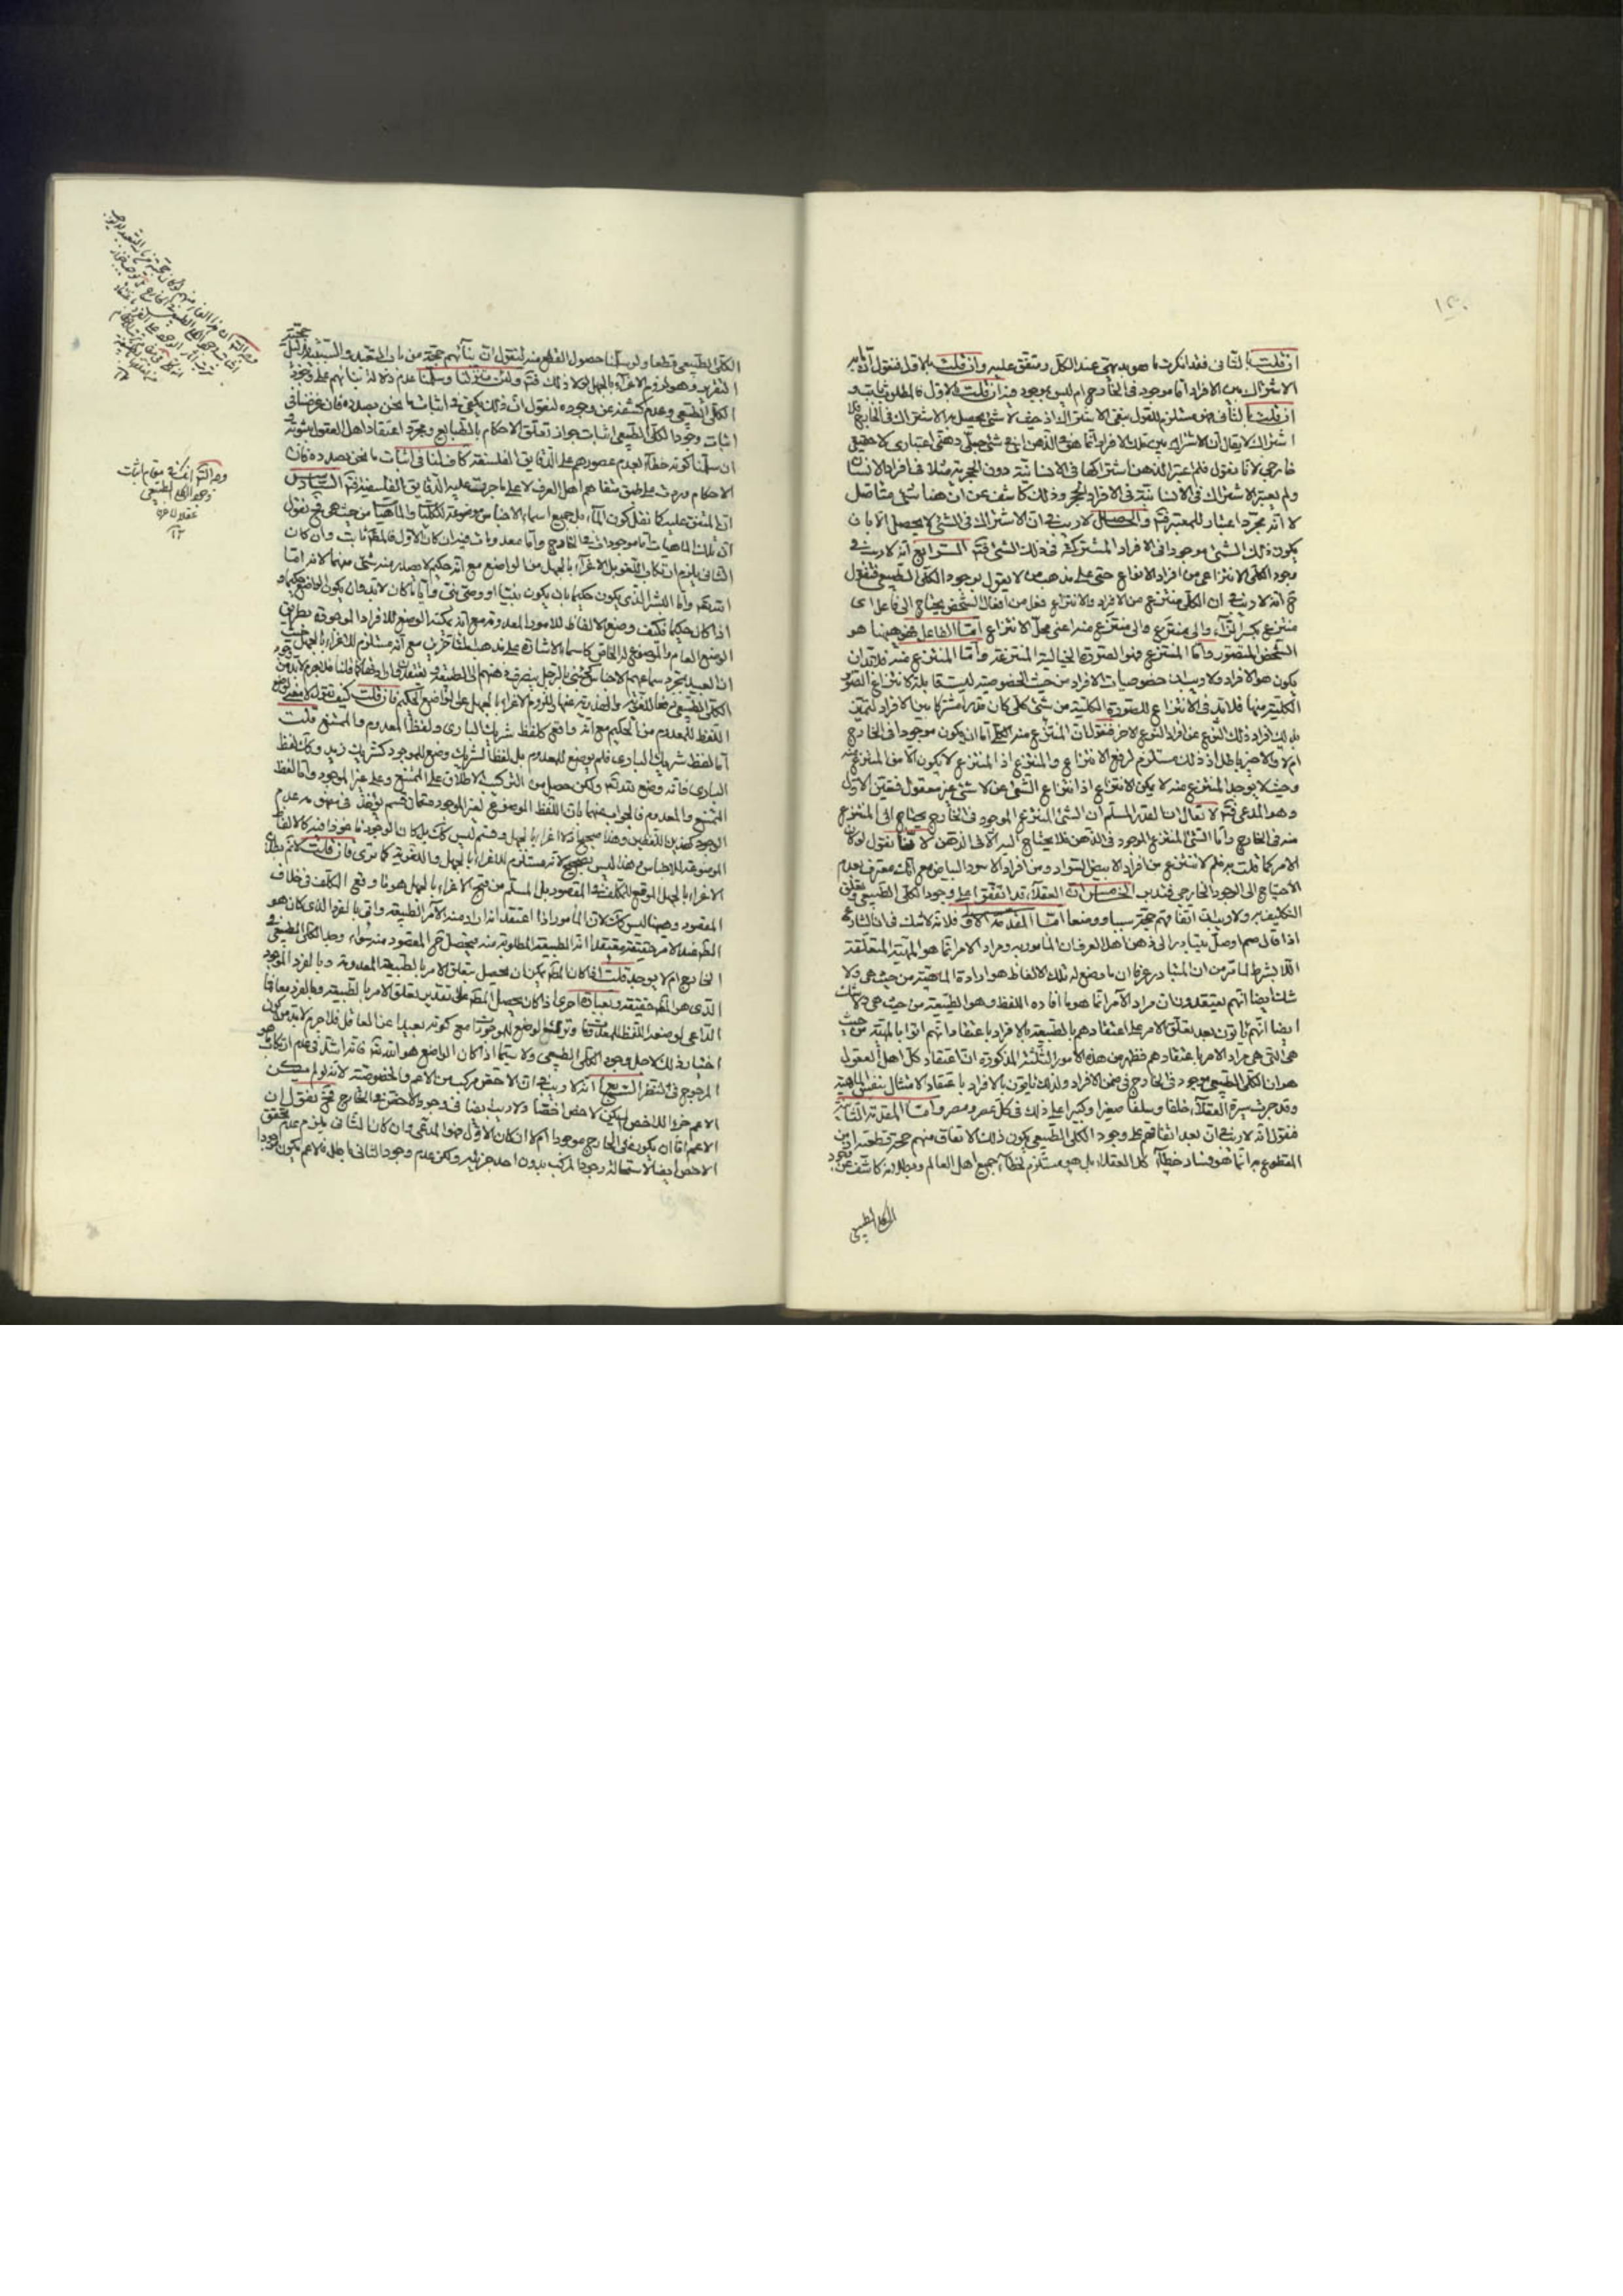 ١٢٠
ان قلت بالثانى فقد انكرت ما هو بديهى عند الكل ومتفق عليه وان قلت بالاول فنقول ان ما به
الاشتراك بين الافراد اما موجود فى الخارج ام ليس بموجود فيه ان قلت بالاول فالمطلوب ثابت و
ان قلت بالثانى فهو مستلزم للقول بنفى الاشتراك اذ حينئذ لا شئ يحصل به الاشتراك فى الخارج فلا
اشتراك لا يقال ان الاشتراك بين تلك الافراد انما هو فى الذهن اى فى شئ جعلى ذهنى اعتبارى لا حقيقى
خارجى لانا نقول فلم اعتبر الذهن اشتراكها فى الانسانية دون الحجرية مثلا فى افراد الانسان
ولم يعتبر الاشتراك فى الانسانية فى الافراد الحجر وذلك كاشف عن ان هنا شئ متاصل
لا انه مجرد اعتبار للمعتبر فتم والحاصل لا ريب فى ان الاشتراك فى الشئ لا يحصل الا بان
يكون ذلك الشئ موجودا فى الافراد المشتركة فى ذلك الشئ فتم الرابع انه لا ريب فى
وجود الكلى الانتزاعى من افراد الانواع حتى على مذهب من لا يقول بوجود الكلى الطبيعى فنقول
ح انه لا ريب فى ان الكلى منتزع من الافراد والانتزاع فعل من افعال الشخص يحتاج الى فاعل اى
منتزع بكسر الزاء والى منتزع والى منتزع منه اعنى محل الانتزاع اما الفاعل فهو ههنا هو
الشخص المتصور واما المنتزع فهو الصورة الخيالية المنتزعة واما المنتزع منه فلا بد ان
يكون هو الافراد ولا ريب ان خصوصيات الافراد من حيث الخصوصية ليست قابلة لانتزاع الصور
الكلية منها فلا بد فى الانتزاع للصورة الكلية من شئ كلى كان قدرا مشتركا بين الافراد ليتميز
بذلك افراد ذلك النوع عن افراد النوع الاخر فنقول ان المنتزع منه الكلى اما ان يكون موجودا فى الخارج
ام لا والاخير باطل اذ ذلك مستلزم لرفع الانتزاع والمنتزع اذ المنتزع لا يكون الا من المنتزع منه
وحيث لا يوجد المنتزع منه لا يمكن الانتزاع اذ انتزاع الشئ عن لا شئ غير معقول فتعين الاول
وهو المدعى فتم لا يقال ان القدر المسلم ان الشئ المنتزع الموجود فى الخارج يحتاج الى المنتزع
منه فى الخارج واما الشئ المنتزع الموجود فى الذهن فلا يحتاج اليه الا فى الذهن لانا نقول لو كان
الامر كما قلت به فلم لا تنتزع من افراد الابيض السواد ومن افراد الاسود البياض مع انك معترف بعدم
الاحتياج الى الوجود الخارجى فتدبر الخامس ان العقلاء قد اتفقوا على وجود الكلى الطبيعى وتعلق
التكاليف به ولا ريب ان اتفاقهم حجة سببا ووضعا اما المقدمة الاولى فلانه لا شك فى ان الشارع
اذا قال صم او صل يتبادر الى ذهن اهل العرف ان المامور به ومراد الامر انما هو المهية المتعلقة
اللا بشرط لما تقرر من ان المتبادر عرفا ان ما وضع له تلك الالفاظ هو ارادة الماهية من حيث هى ولا
شك ايضا انهم يعتقدون ان مراد الآمر انما هو ما افاده اللفظ وهو الطبيعة من حيث هى ولا شك
ايضا انهم ياتون بعد تعلق الامر على اعتقادهم بالطبيعة بالافراد باعتقاد انهم اتوا بالمهية من حيث
هى التى هى مراد الامر باعتقادهم فظهر من هذه الامور الثلثة المذكورة ان اعتقاد كل اهل العقول
هو ان الكلى الطبيعى موجود فى الخارج فى ضمن الافراد ولذلك ياتون بالافراد باعتقاد الامتثال بنفس الماهية
وقد جرت سيرة العقلاء خلفا وسلفا صغيرا وكبيرا على ذلك فى كل عصر ومصر واما المقدمة الثانية
فنقول انه لا ريب فى ان بعد اتفاقهم على وجود الكلى الطبيعى يكون ذلك الاتفاق منهم حجة قطعية اذ من
المقطوع به انما هو فساد خطاء كل العقلاء بل هو مستلزم لخطاء جميع اهل العالم وبطلانه كاشف عن وجود
الكلى الطبيعى
الكلى الطبيعى قطعا ولو سلمنا حصول القطع منه لنقول ان بنائهم حجة من باب التعبد والسببية لدليل
التقرير وهو لزوم الاغراء بالجهل لولا ذلك فتم ولئن تنزلنا وسلمنا عدم دلالة بنائهم على وجود
الكلى الطبيعى وعدم كشفه عن وجوده لنقول ان ذلك يكفى فى اثبات ما نحن بصدده فان غرضنا فى
اثبات وجود الكلى الطبيعى اثبات جواز تعلق الاحكام بالطبايع ومجرد اعتقاد اهل العقول بثبوته
ان سلمنا كونه خطاء لعدم عصورهم على الدقايق الفلسفية كاف لنا فى اثبات ما نحن بصدده فان
الاحكام وردت على طبق متفاهم اهل العرف لا على ما جرت عليه الدقايق الفلسفية فتم السادس
ان المتفق عليه كما نقل كون الماء بل جميع اسماء الاجناس موضوعة للكليات والماهيات من حيث هى فح نقول
ان تلك الماهيات اما موجودات فى الخارج واما معدومات فيه ان كان الاول فالمط ثابت وان كان
الثانى يلزم ارتكاب التقبيح بالاغراء بالجهل من الواضع مع انه حكيم لا يصدر منه شئ منهما لانه اما
الله تع واما البشر الذى يكون حكيما بان يكون نبيا او وصى نبى وايا ما كان لابد وان يكون الواضع حكيما و
اذا كان حكيما فكيف وضع الالفاظ للامور المعدومة مع انه يمكنه الوضع للافراد الموجودة بطريق
الوضع العام والموضوع له الخاص كاسماء الاشارة على مذهب المتاخرين مع انه مستلزم للاغراء بالجهل حيث
اللفظ للمعدوم من الحكيم مع انه واقع كلفظ شريك البارى ولفظ المعدوم والممتنع قلت
اما لفظ شريك البارى فلم يوضع للمعدوم بل لفظ الشريك وضع للموجود كشريك زيد وكك لفظ
البارى فانه وضع لله تع ولكن حصل من التركيب الاطلاق على الممتنع وعلى غير الموجود واما لفظ
الممتنع والمعدوم فالجواب عنهما بان اللفظ الموضوع لغير الموجود قسمان قسم يؤخذ فى مفهومه عدم
الوجود كهذين اللفظين وهذا صحيح اذ لا اغراء بالجهل وقسم ليس كك بل كان الوجود ماخوذا فيه كالالفاظ
الموضوعة للاجناس وهذا ليس بصحيح لانه مستلزم للاغراء بالجهل واللغوية كما ترى فان قلت لا نم بطلان
الاغراء بالجهل الموقع للمكلف فى المقصود بل المسلم من قبح الاغراء بالجهل هو ما وقع المكلف فى خلاف
المقصود وههنا ليس كك لان المامور اذا اعتقد انه اراد منه الآمر الطبيعة واتى بالفرد الذى كان هو
المط عند الامر حقيقة معتقدا انه الطبيعة المطلوبة منه فيحصل ح المقصود منه سواء وجد الكلى الطبيعى فى
الخارج ام لا يوجد قلت اذا كان المط يمكن ان يحصل بتعلق الامر بالطبيعة المعدومة وبالفرد الموجود
الذى هو المط حقيقة وبعبارة اخرى اذ كان يحصل المط على تقدير تعلق الامر بالطبيعة وبالفرد معا فما
الداعى لوضعه اللفظ للمعدومات وترك الوضع للموجودات مع كونه بعيدا عن العاقل فلا جرم لابد من كون
اختيار ذلك لاجل وجود الكلى الطبيعى ولا سيما اذا كان الواضع هو الله تع فانه اشد فى عدم ارتكاب ما هو
المرجوح فى النظر السابع انه لا ريب فى ان الاخص مركب من الاعم والخصوصية لانه لو لم يكن
الاعم جزء للاخص لم يكن الاخص اخصا ولا ريب ايضا فى وجود الاخص فى الخارج فح نقول ان
الاعم اما ان يكون فى الخارج موجودا ام لا ان كان الاول فهو المدعى وان كان الثانى يلزم عدم تحقق
الاخص ايضا لاستحالة وجود المركب بدون احد جزئيه ولكن عدم وجود الثانى باطل فالاعم يكون موجودا